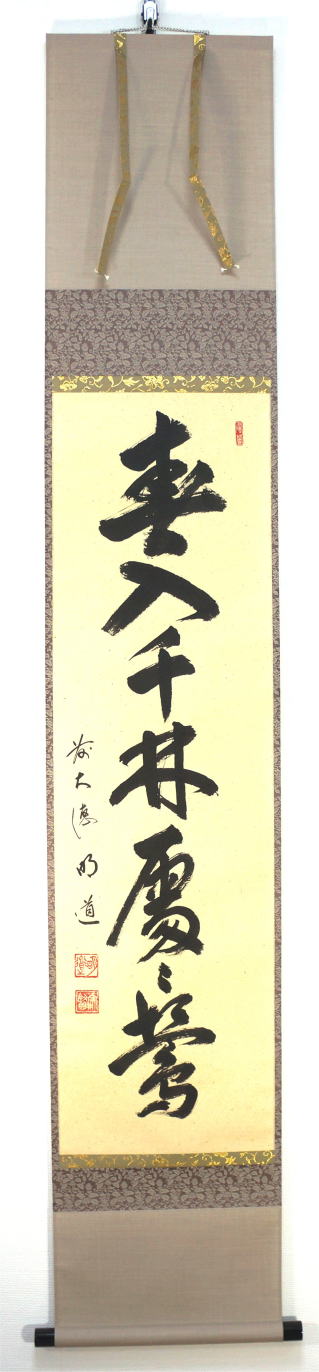 春入千林處々鶯
前大德明道